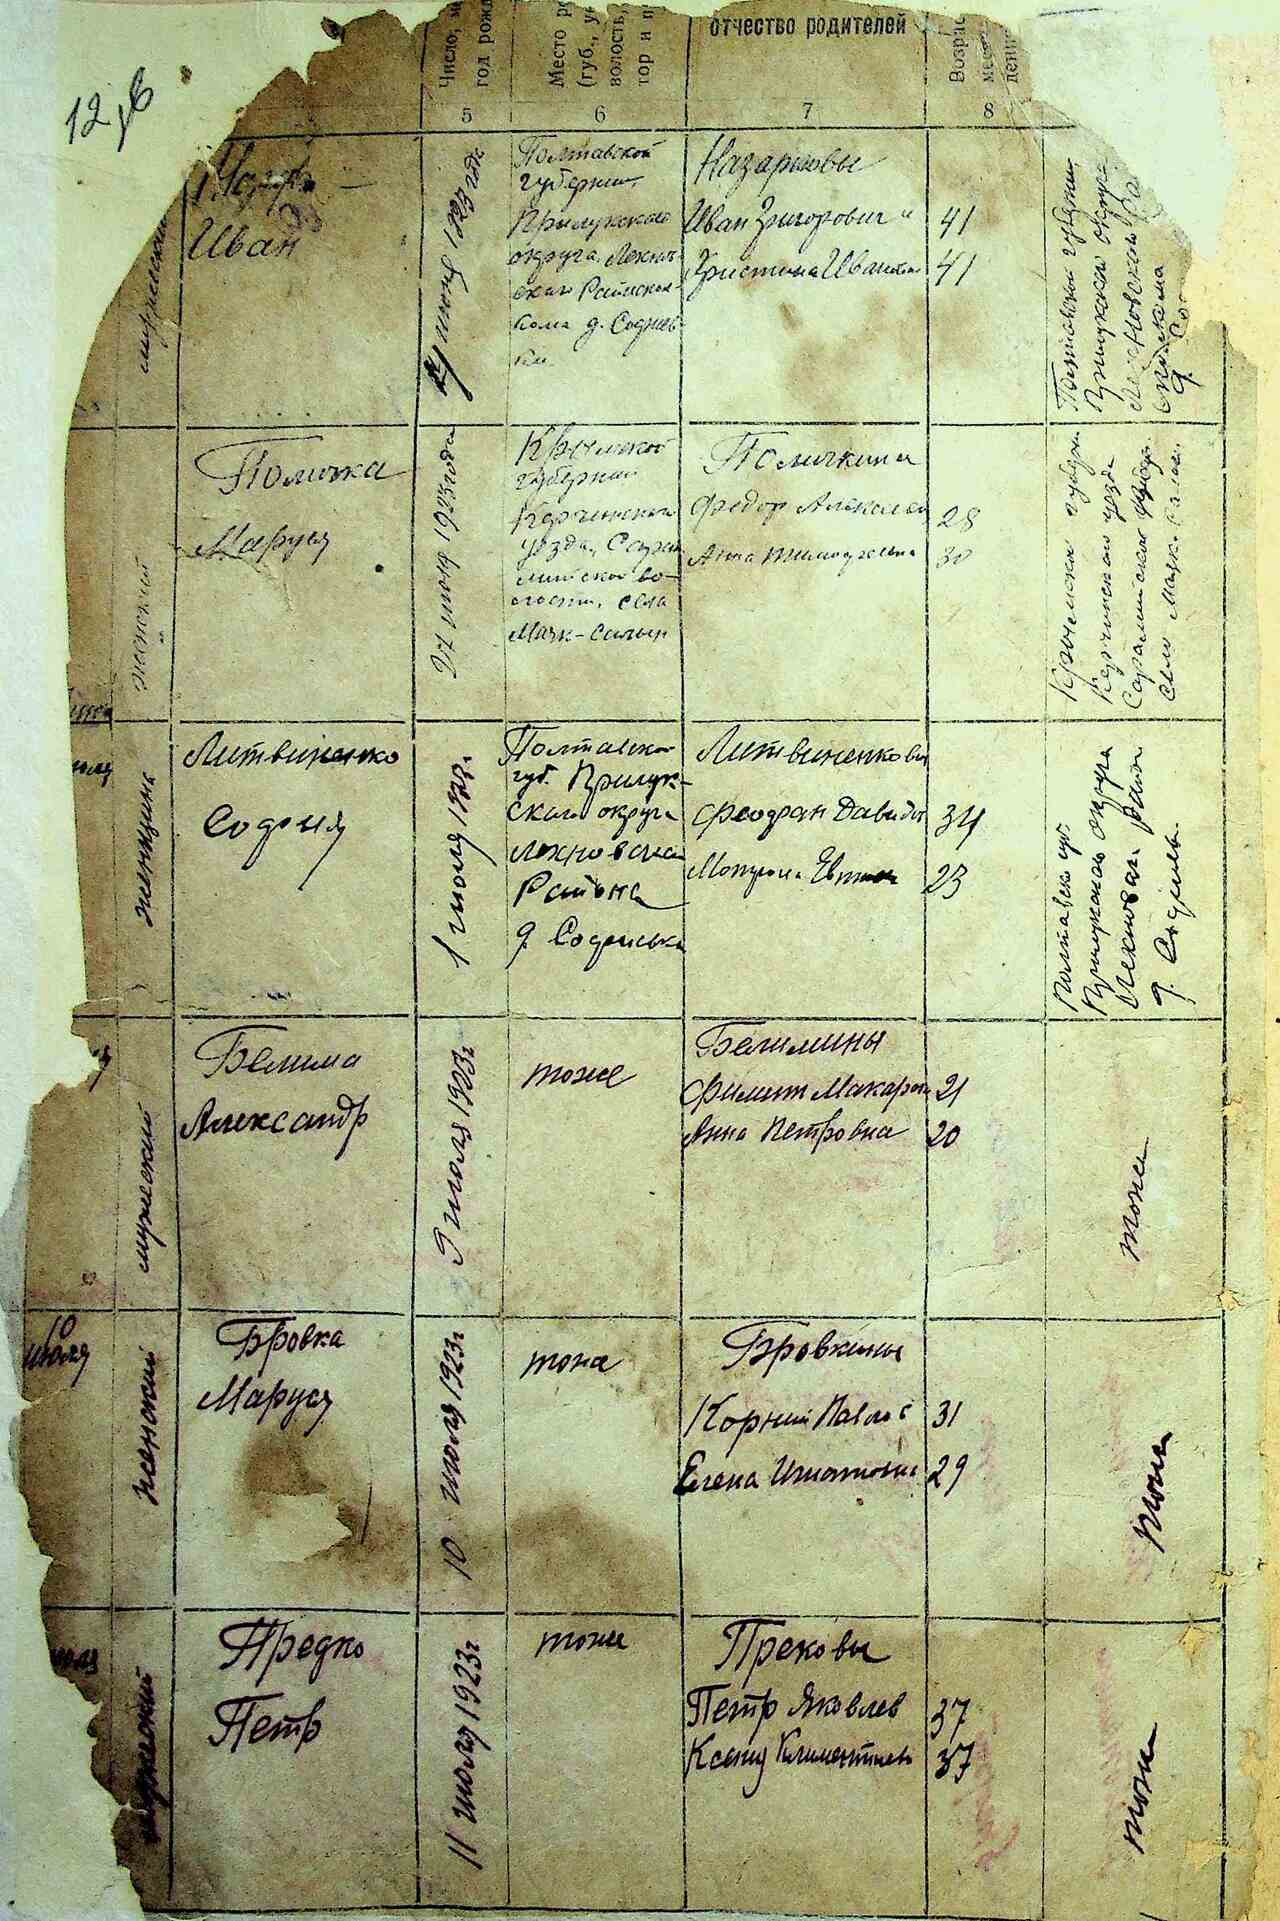 12
Число,
год рожд
Место р
(губ., у
волость,
тор и п
отчество родителей
Возрас
мес
5
6
7
8
мужеский
Иван
июня 1923 года
Полтавской
губернии
Прилукского
округа Лохнов
кома д. Софиев
ки
Назарковы
Иван Григорович и
Христина
41
41
Полтавской губернии
Прилукского округа
Лехновского
д. Со
женский
Поличка
Маруся
27 июня 1923 года
Крымской
губернии
Керченского
уезда, Сарай
минской во-
лости, села
Маяк-Салын
Поличкины
Федор Алексеев
Анна Тимофеевна
28
30
Крымской губерн
Керченского уезда
село Маяк-Салын
женщина
Литвиненко
София
1 июля 1923г.
Полтавской
губ. Прилук-
ского округа
Лехновского
Района
д. Софиевка
Литвиненковы
Феофан Давидов
34
23
Полтавской губ.
Прилукского округа
Лехновск. района
д. Софиевк.
мужеский
Белима
Александр
9 июля 1923г
тоже
Белимины
Филипп Макаров
Анна Петровна
21
20
тоже
10
июля
женский
Бровка
Маруся
10 июля 1923г
тоже
Бровкины
Корний Павлов
Елена Игнатовна
31
29
тоже
мужеский
Предко
Петр
11 июля 1923г
тоже
Прековы
Петр Яковлев
Ксения Климентиев
37
37
тоже